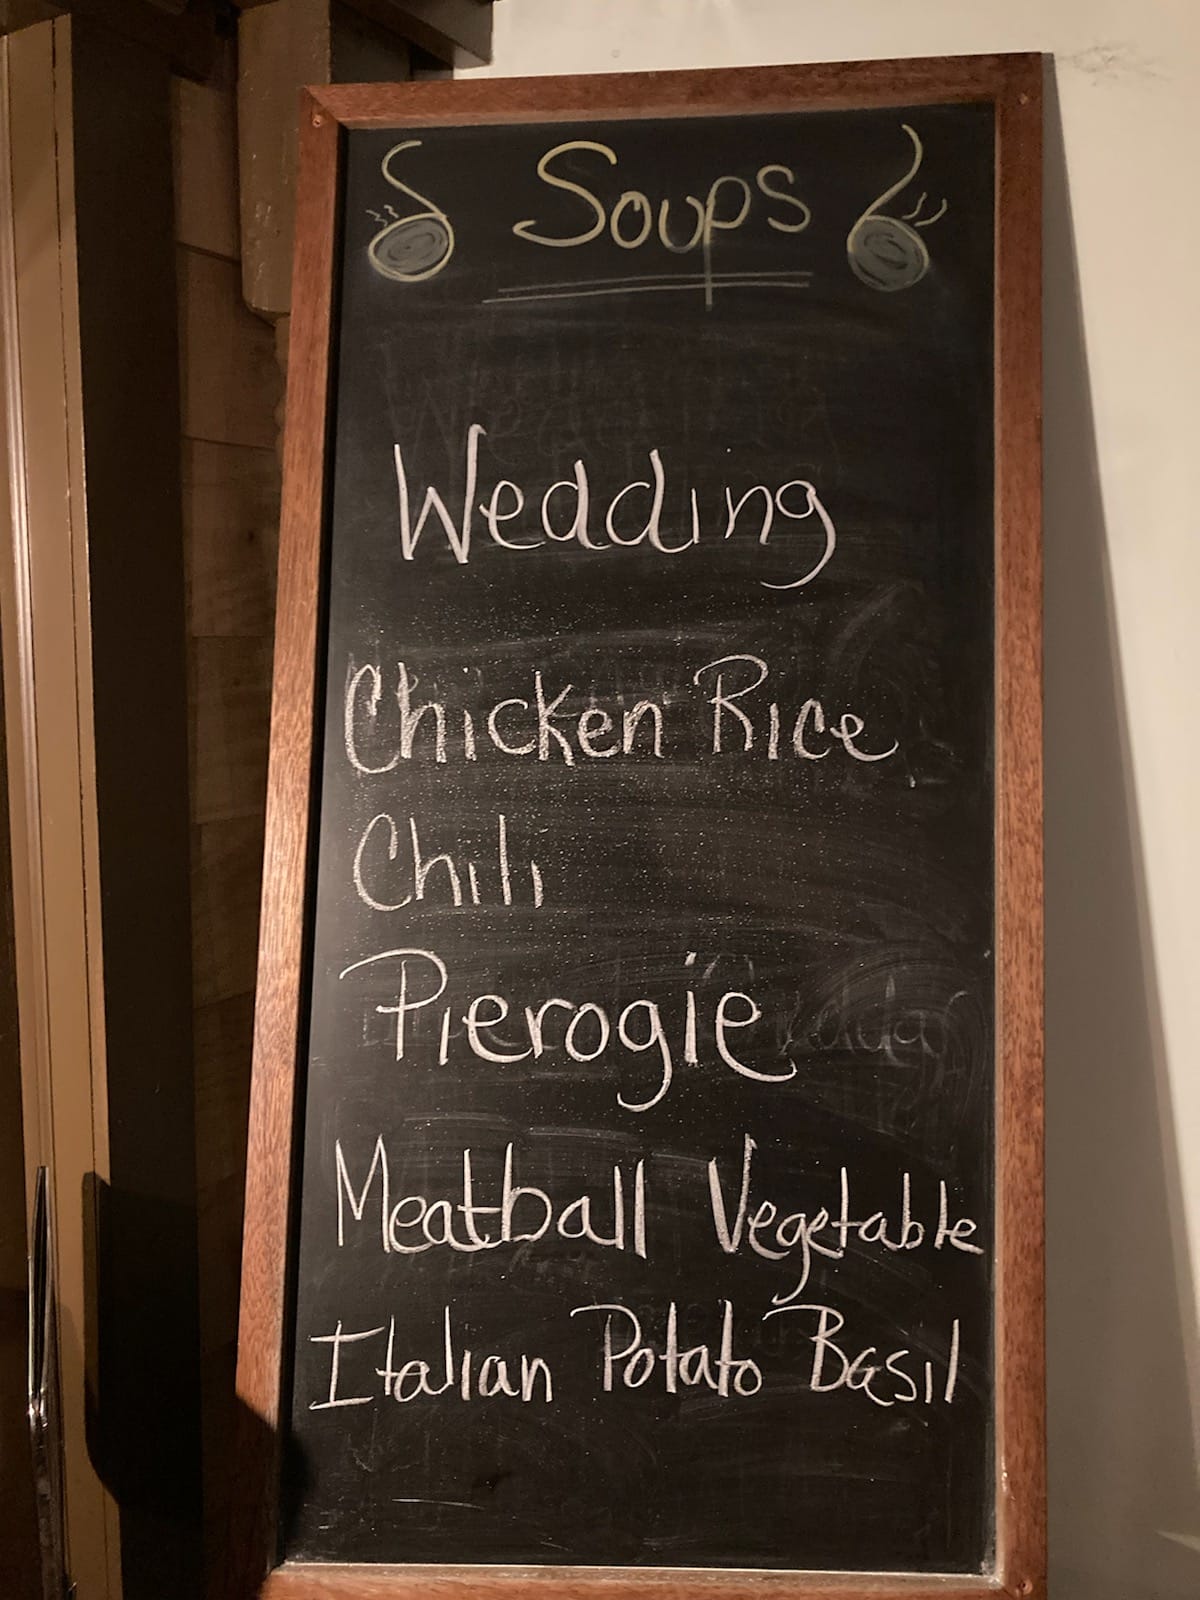 Soups
Wedding
Chicken Rice
Chili
Pierogie
Meatball Vegetable
Italian Potato Basil